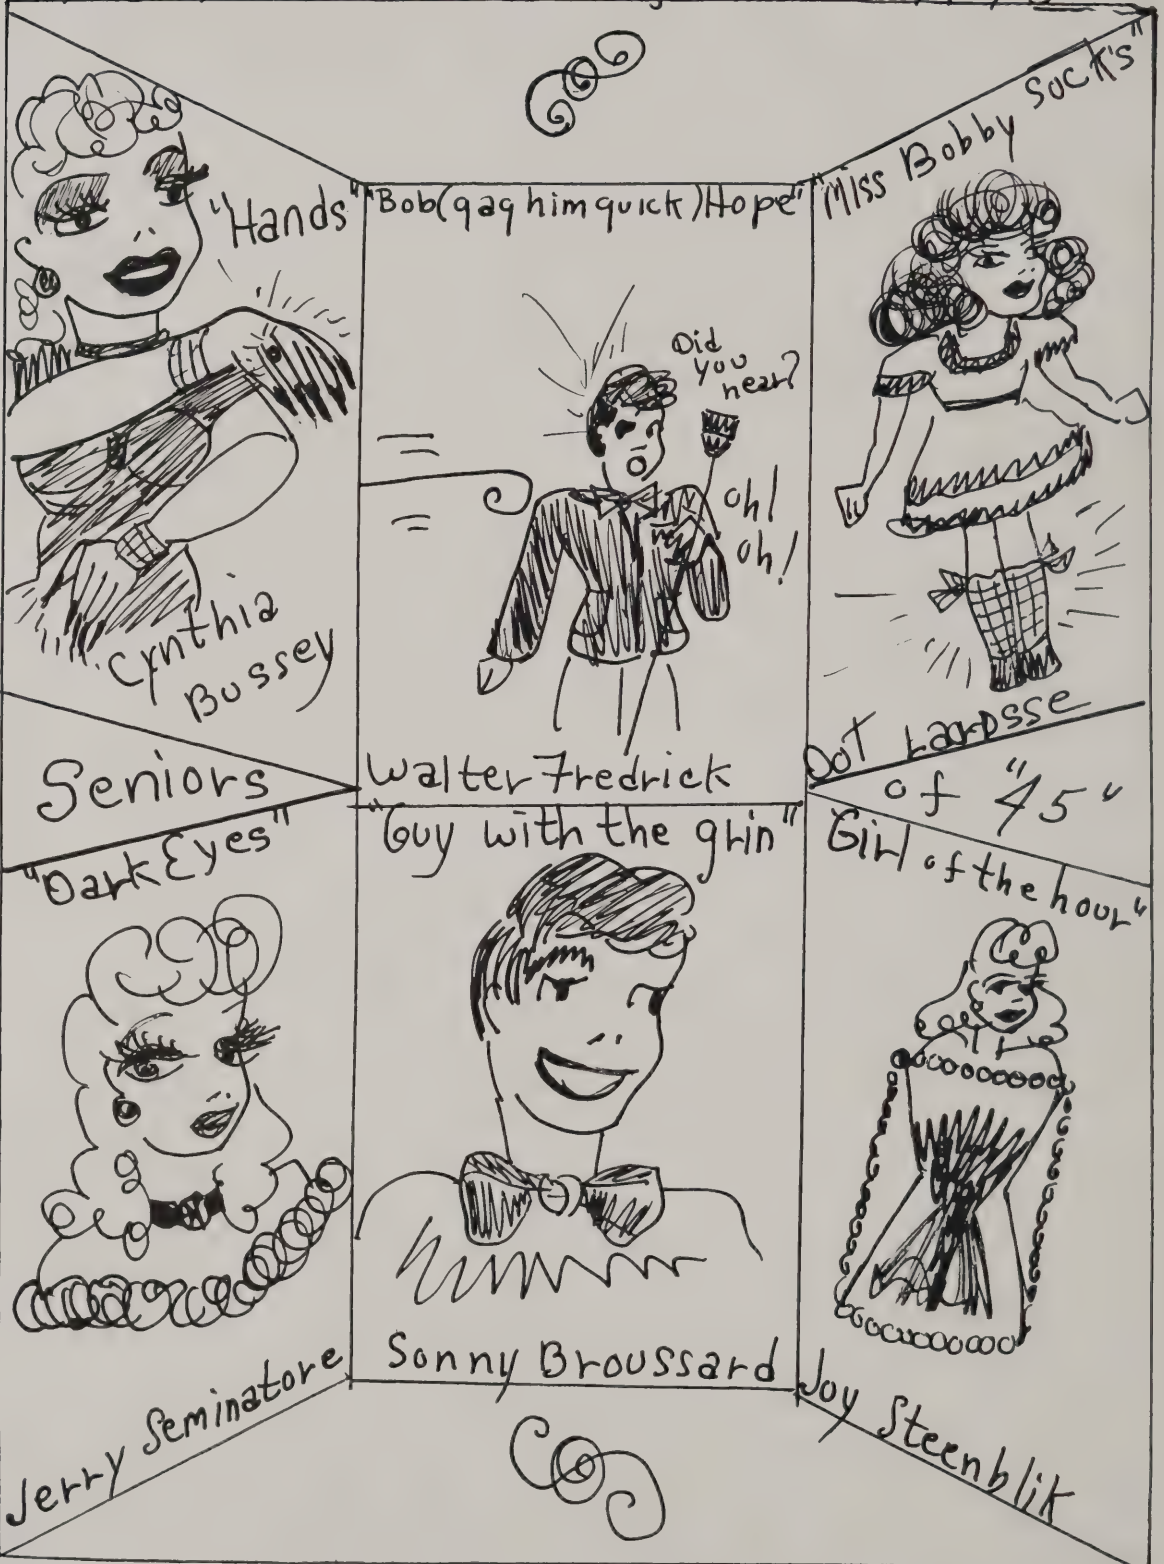 "Hands"
Cynthia
Bussey
"Bob(gag him quick)Hope"
Did
you
hear?
oh!
oh!
Walter Fredrick
"Miss Bobby Sock's"
Dot Lacrosse
Seniors
of "45"
"Dark Eyes"
Jerry Seminatore
"Guy with the grin"
Sonny Broussard
"Girl of the hour"
Joy Steenblik